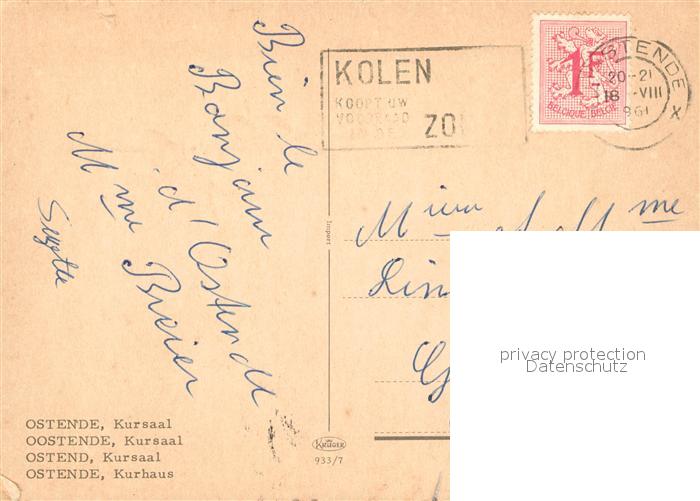 Bien le
Bonjour
d'Ostende
Mme
Suzette
KOLEN
KOOPT UW
VOORRAAD
IN DE
ZO
1F
BELGIQUE-BELGIË
STENDE
20-21
18 -VIII
1961
X
Import
M
et Mme
privacy protection
Datenschutz
OSTENDE, Kursaal
OOSTENDE, Kursaal
OSTEND, Kursaal
OSTENDE, Kurhaus
KRÜGER
933/7